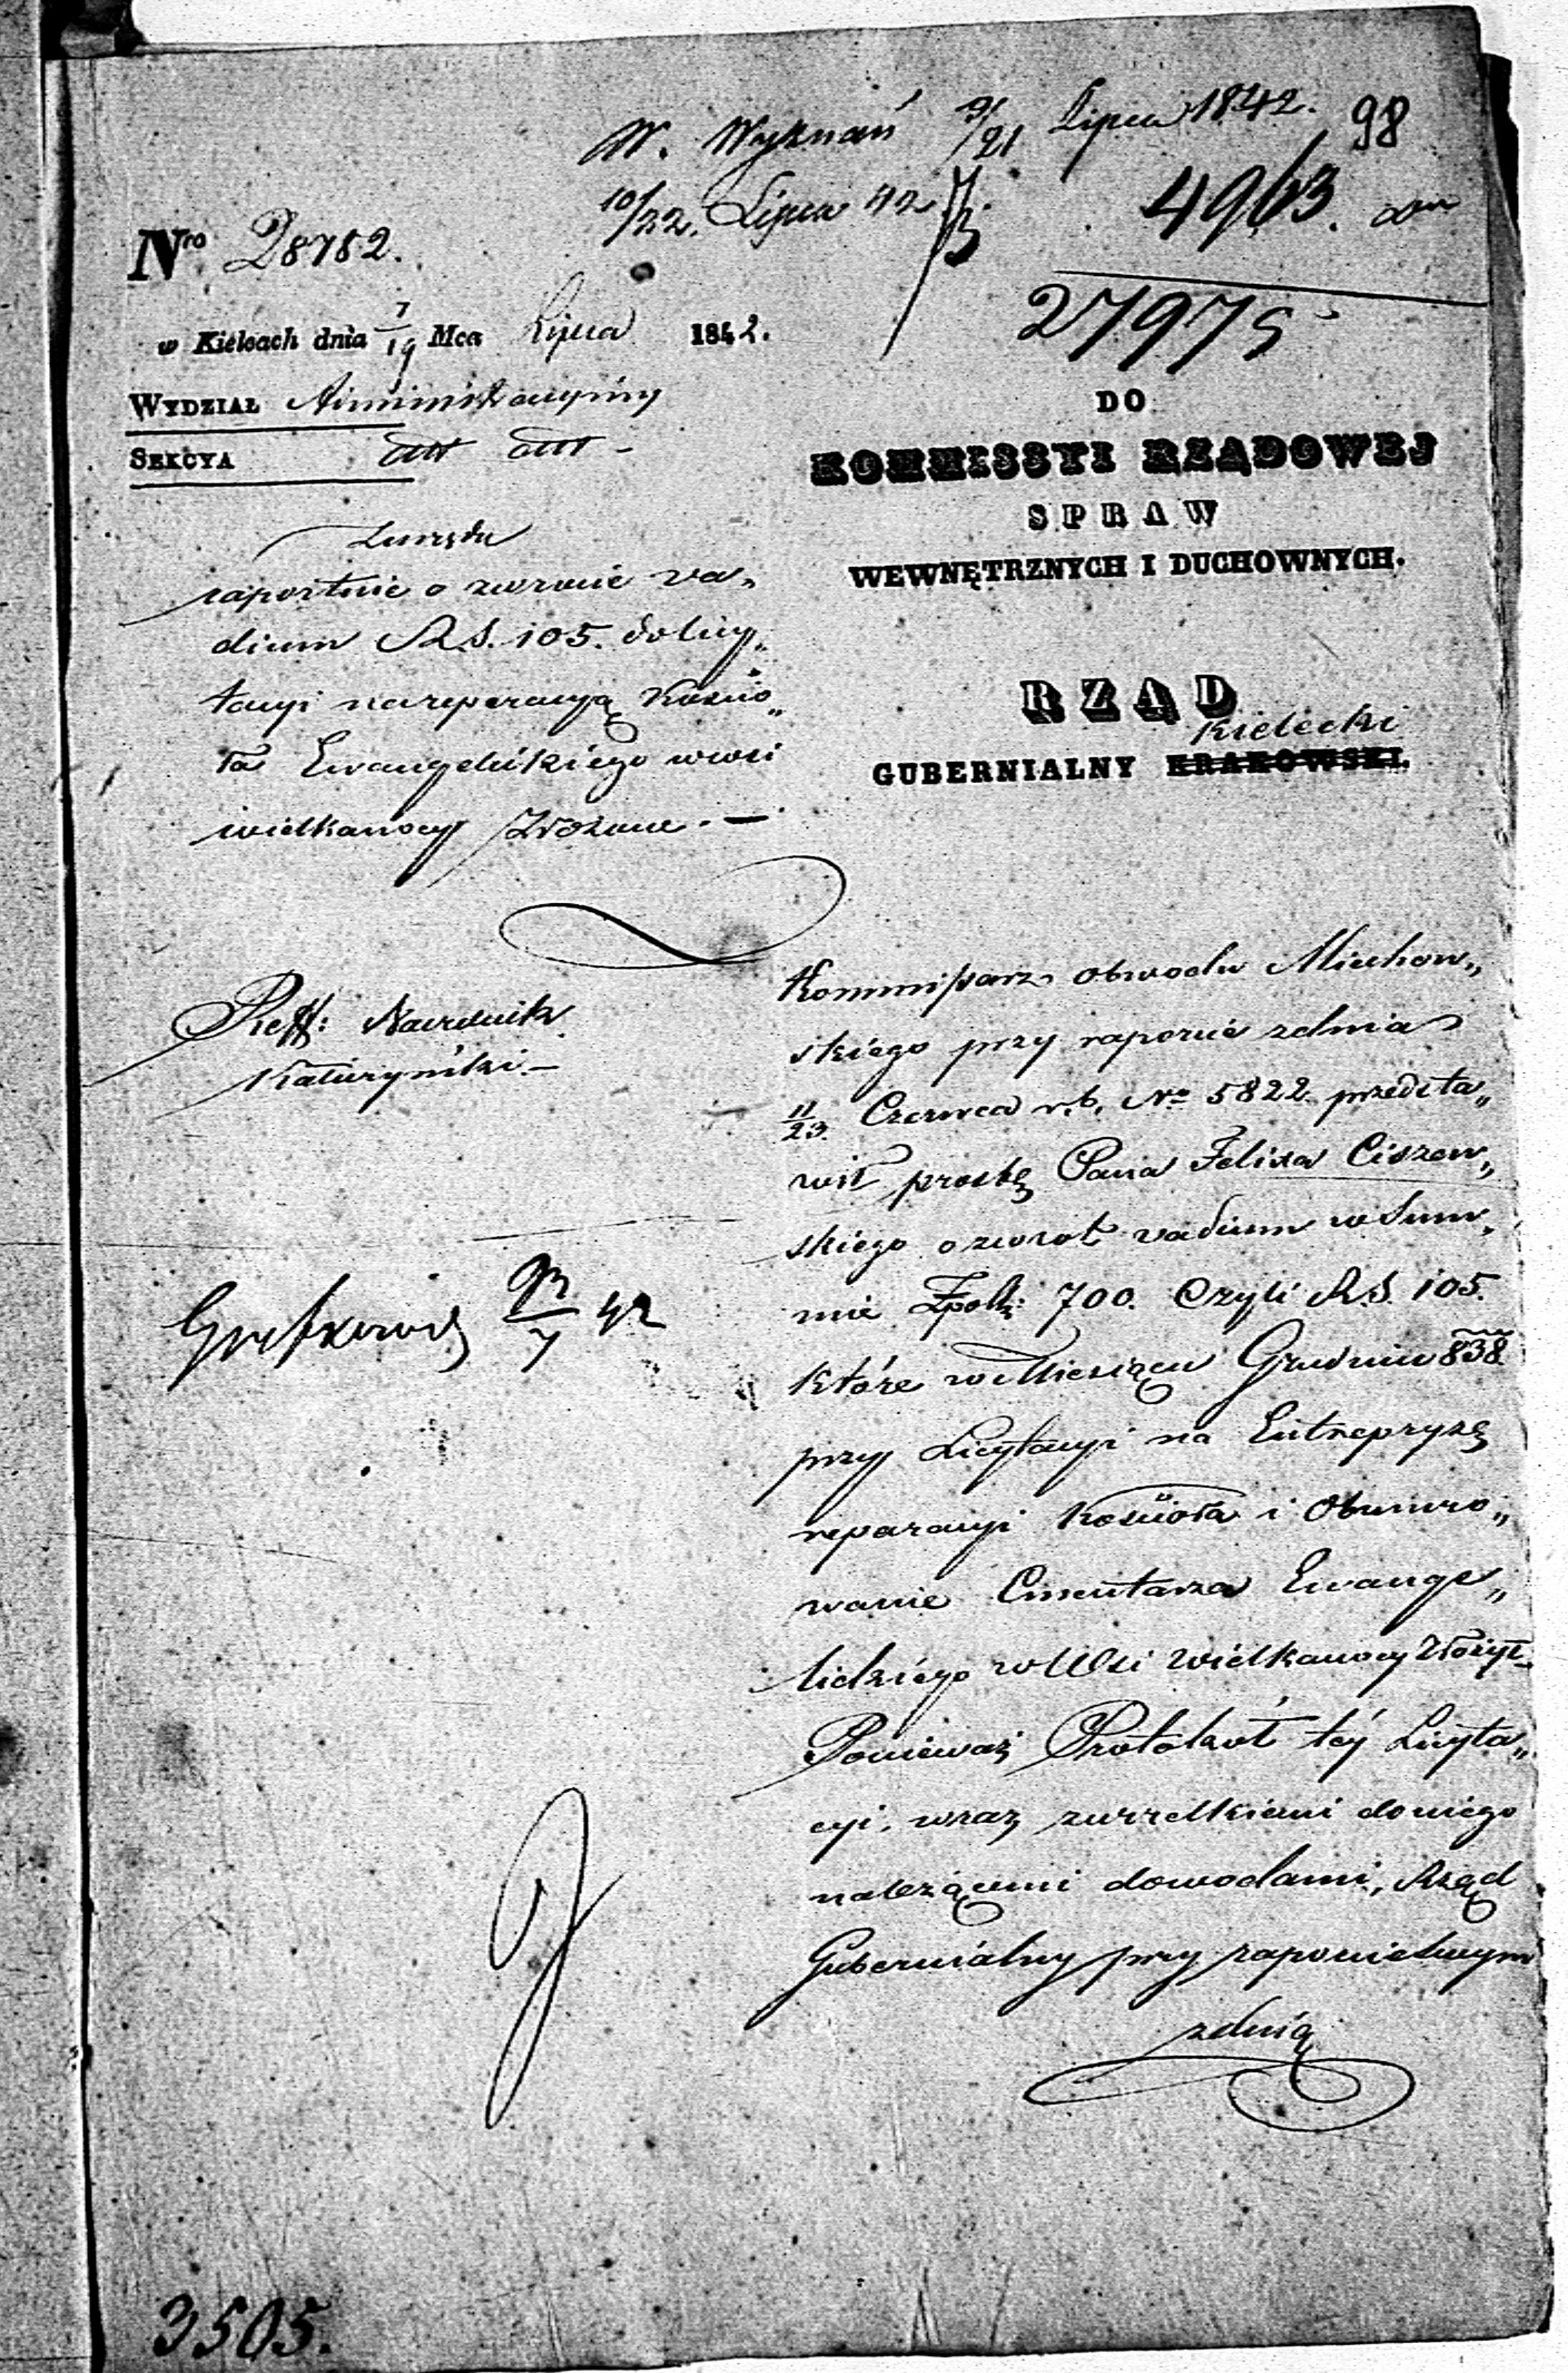 W. Wyznań 9/21 Lipca 1842. 98
10/22. Lipca 42
4963.
27975
Nro 28782.
w Kielcach dnia 7/19 Mca Lipca 1842.
WYDZIAŁ Administracyiny
SEKCYA
DO
KOMMISSYI RZĄDOWEJ
SPRAW
WEWNĘTRZNYCH I DUCHOWNYCH.
RZĄD
Kielecki
GUBERNIALNY KRAKOWSKI.
raportuie o zwrocie va„
dium R.S. 105. do licy„
tacyi na reperacyą Kościo„
ła Ewangelickiego w wsi
wielkanocy złożone. —
Reff: Naczelnik
42
Kommissarz obwodu Miechow„
skiego przy raporcie z dnia
11/23. Czerwca r.b. No 5822 przedsta„
wił prośbę Pana Felixa Ciszew„
skiego o zwrot vadium w Sum„
mie Zpols: 700. Czyli R.S. 105.
które w Miesiącu Grudniu 838
przy Licytacyi na Entrepryzę
reparacyi Kościoła i Obmuro„
wanie Cmentarza Ewange„
lickiego w Wsi Wielkanocy złożył
Ponieważ Protokół téy Licyta„
cyi, wraz z wszelkiemi do niego
należącemi dowodami, Rząd
Gubernialny przy raporcie swym
z dnia
3505.